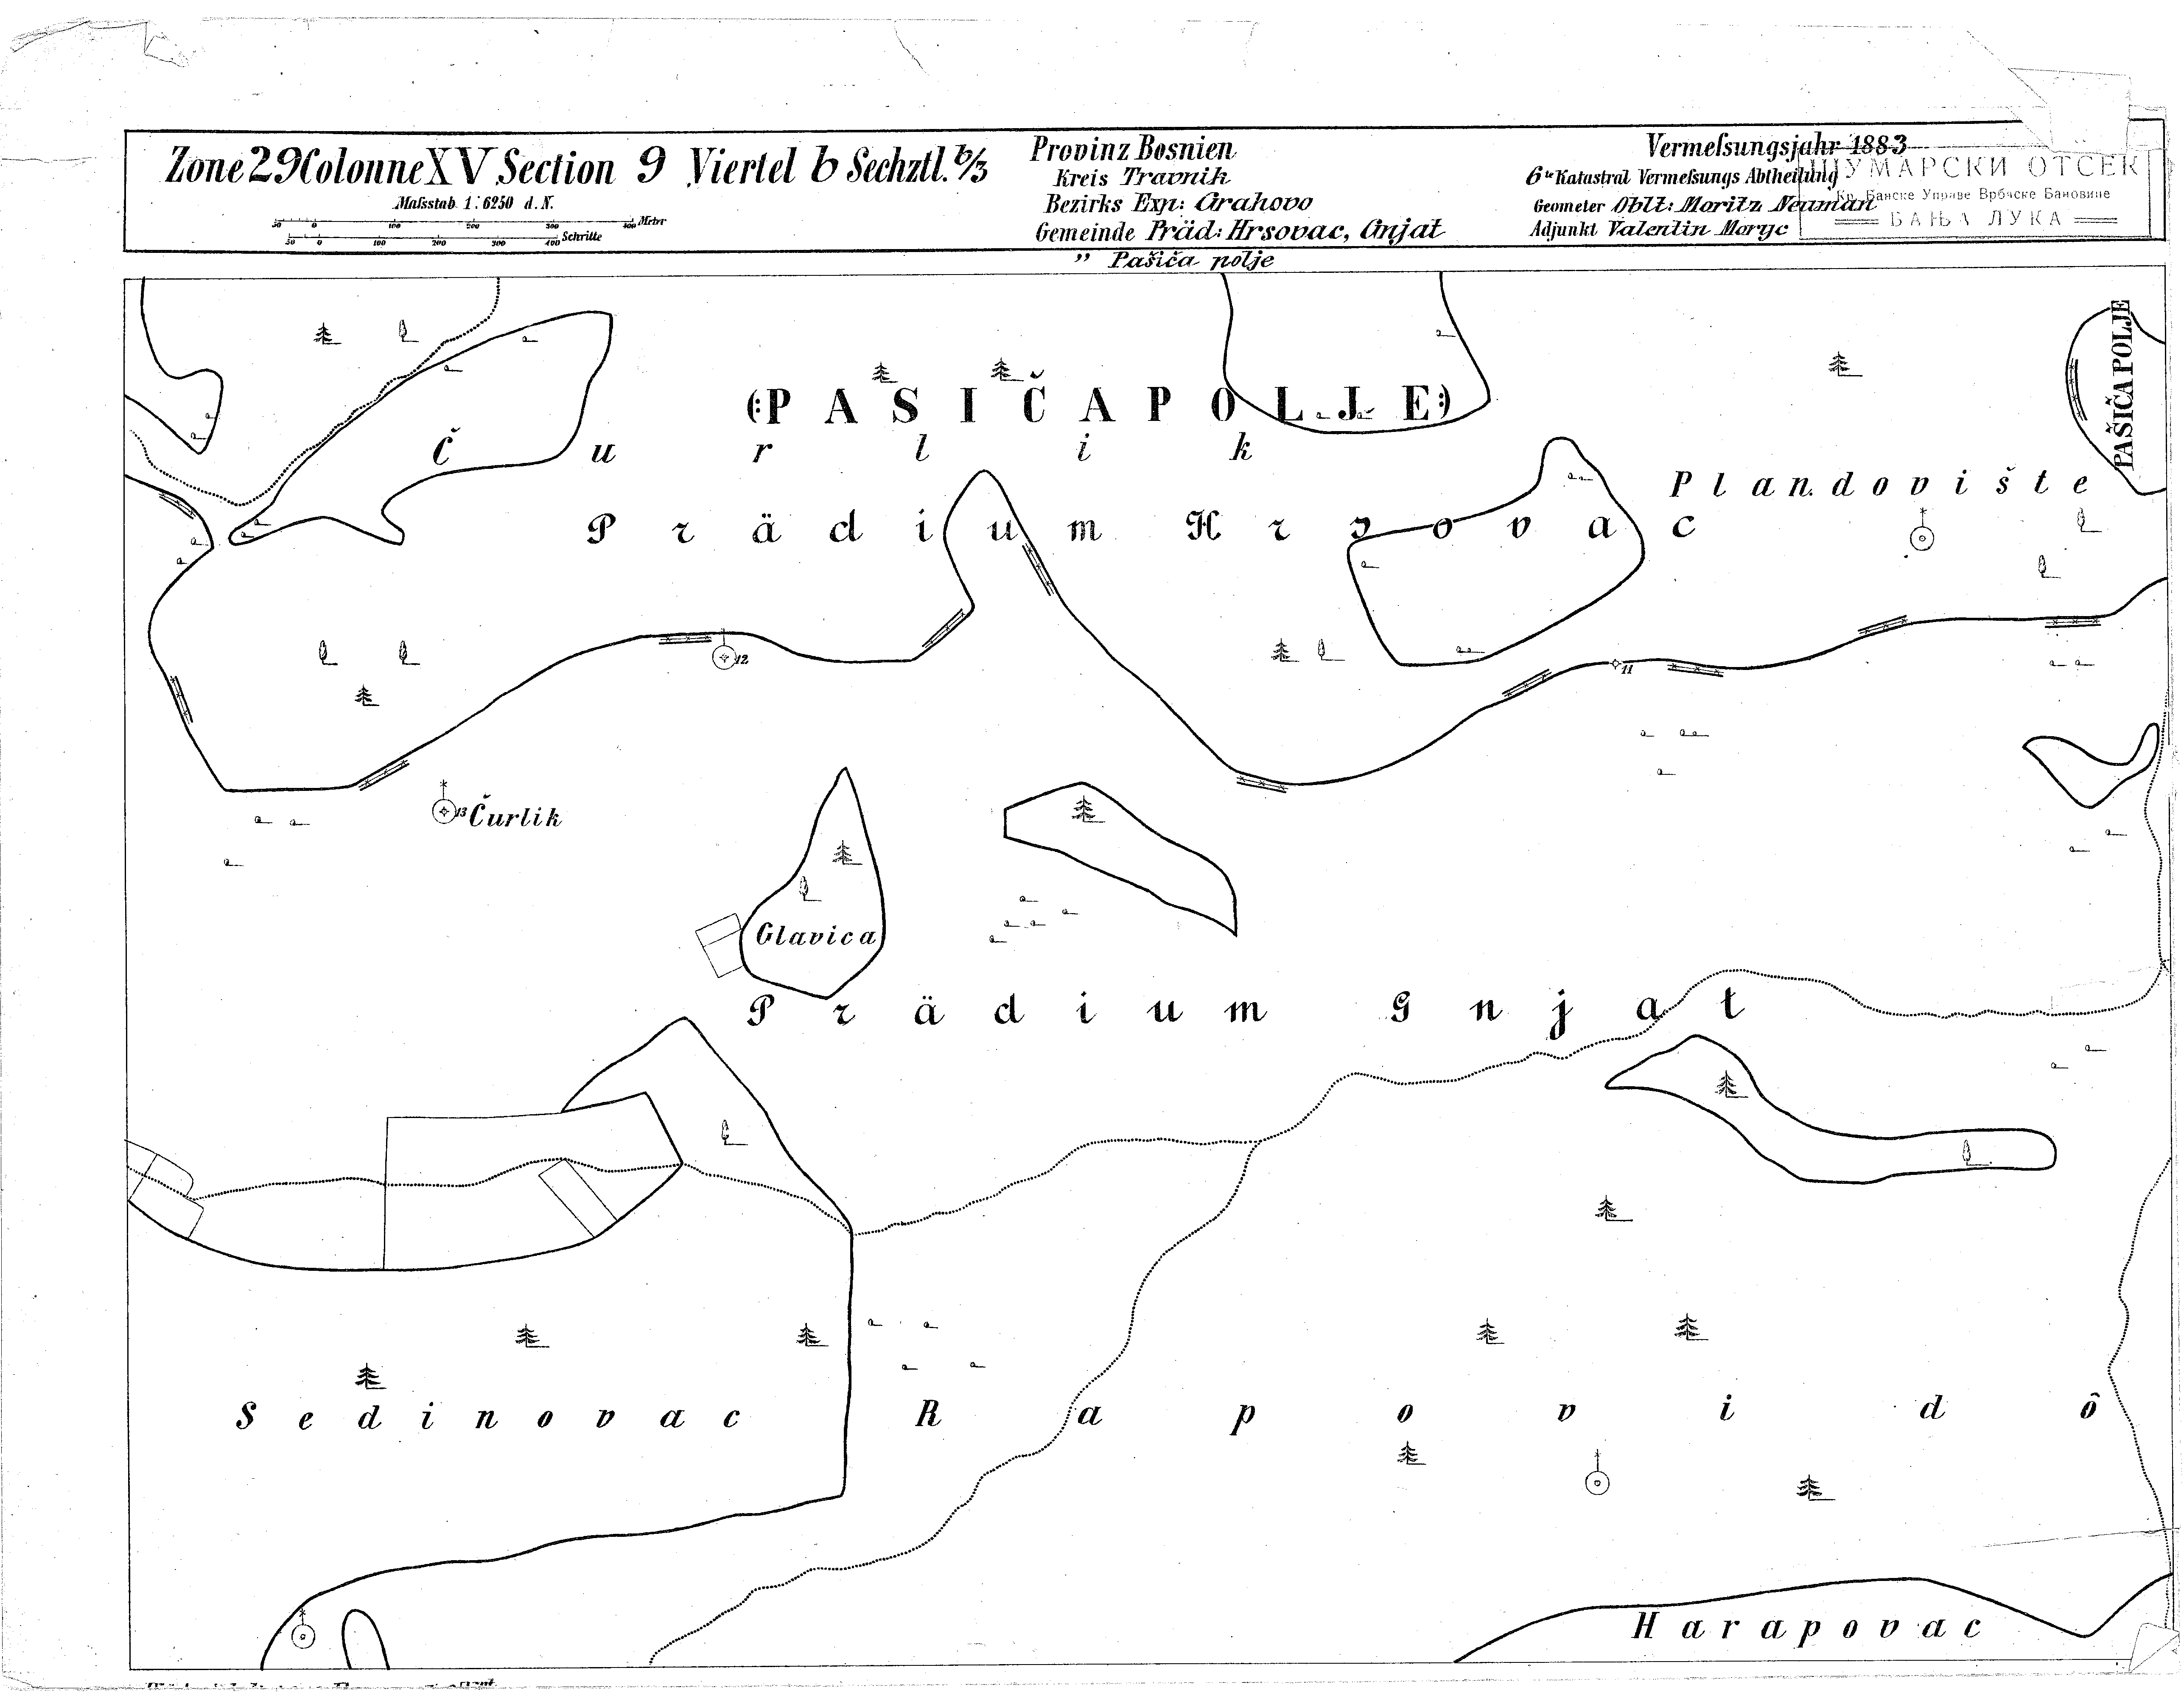 Zone 29 Colonne XV Section 9 Viertel b Sechztl. b/3
Maſsstab 1:6250 d. N.
50 0 100 200 300 400 Meter
50 0 100 200 300 400 Schritte
Provinz Bosnien
Kreis Travnik
Bezirks Exp: Grahovo
Gemeinde Präd: Hrsovac, Gnjat
" Pašića polje
Vermeſsungsjahr 1883
6te Katastral Vermeſsungs Abtheilung
Geometer Oblt: Moritz Neuman
Adjunkt Valentin Moryc
ШУМАРСКИ ОТСЕК
Кр. Банске Управе Врбаске Бановине
БАЊА ЛУКА
(:PASIČAPOLJE)
PAŠIČAPOLJE
Čurlik
Plandovište
Prädium Hrsovac
12
11
13 Čurlik
Glavica
Prädium Gnjat
Sedinovac
Rapovi dô
Harapovac